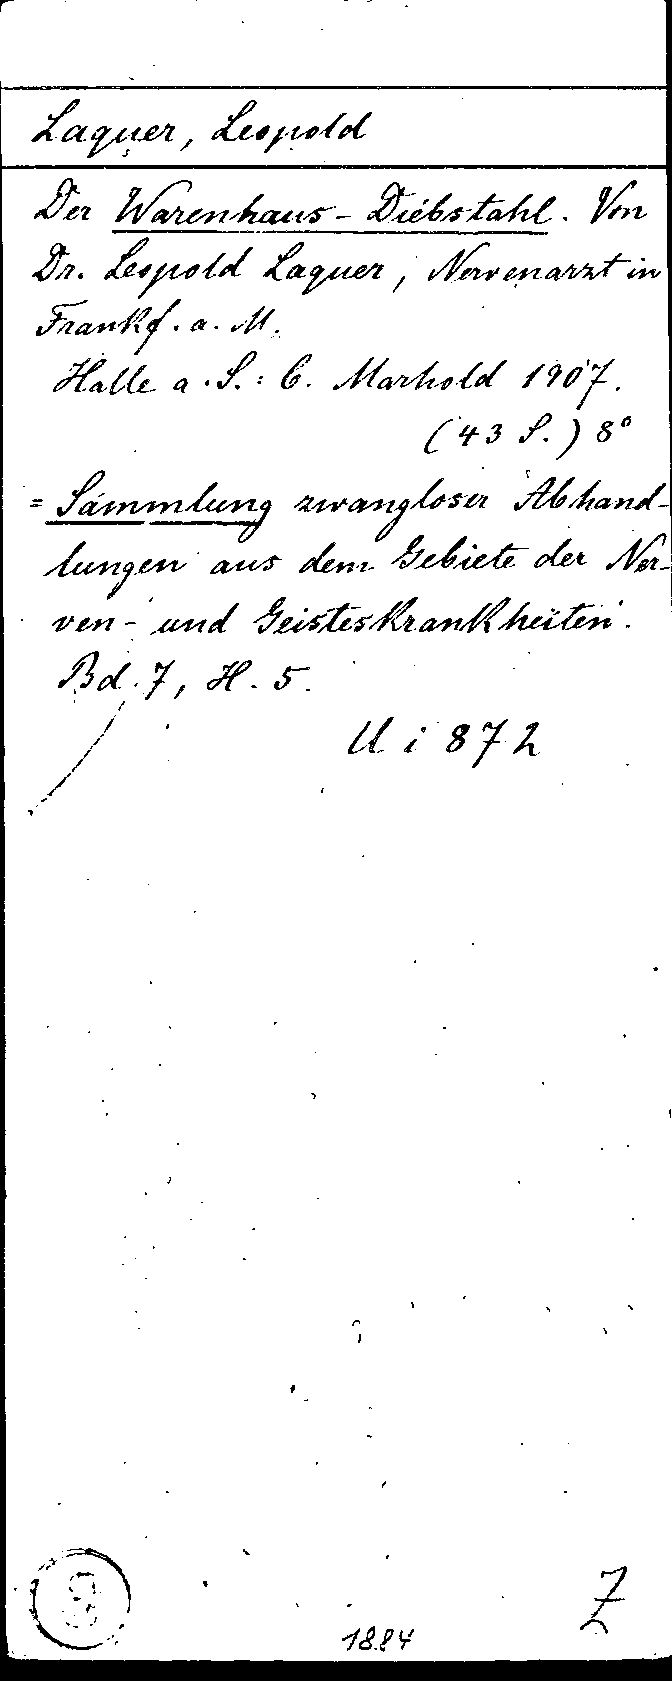 Laquer, Leopold
Der Warenhaus-Diebstahl. Von
Dr. Leopold Laquer, Nervenarzt in
Frankf. a. M.
Halle a. S. : C. Marhold 1907.
(43 S.) 8°
= Sammlung zwangloser Abhand-
lungen aus dem Gebiete der Ner-
ven- und Geisteskrankheiten.
Bd. 7, H. 5.
U i 872
1884